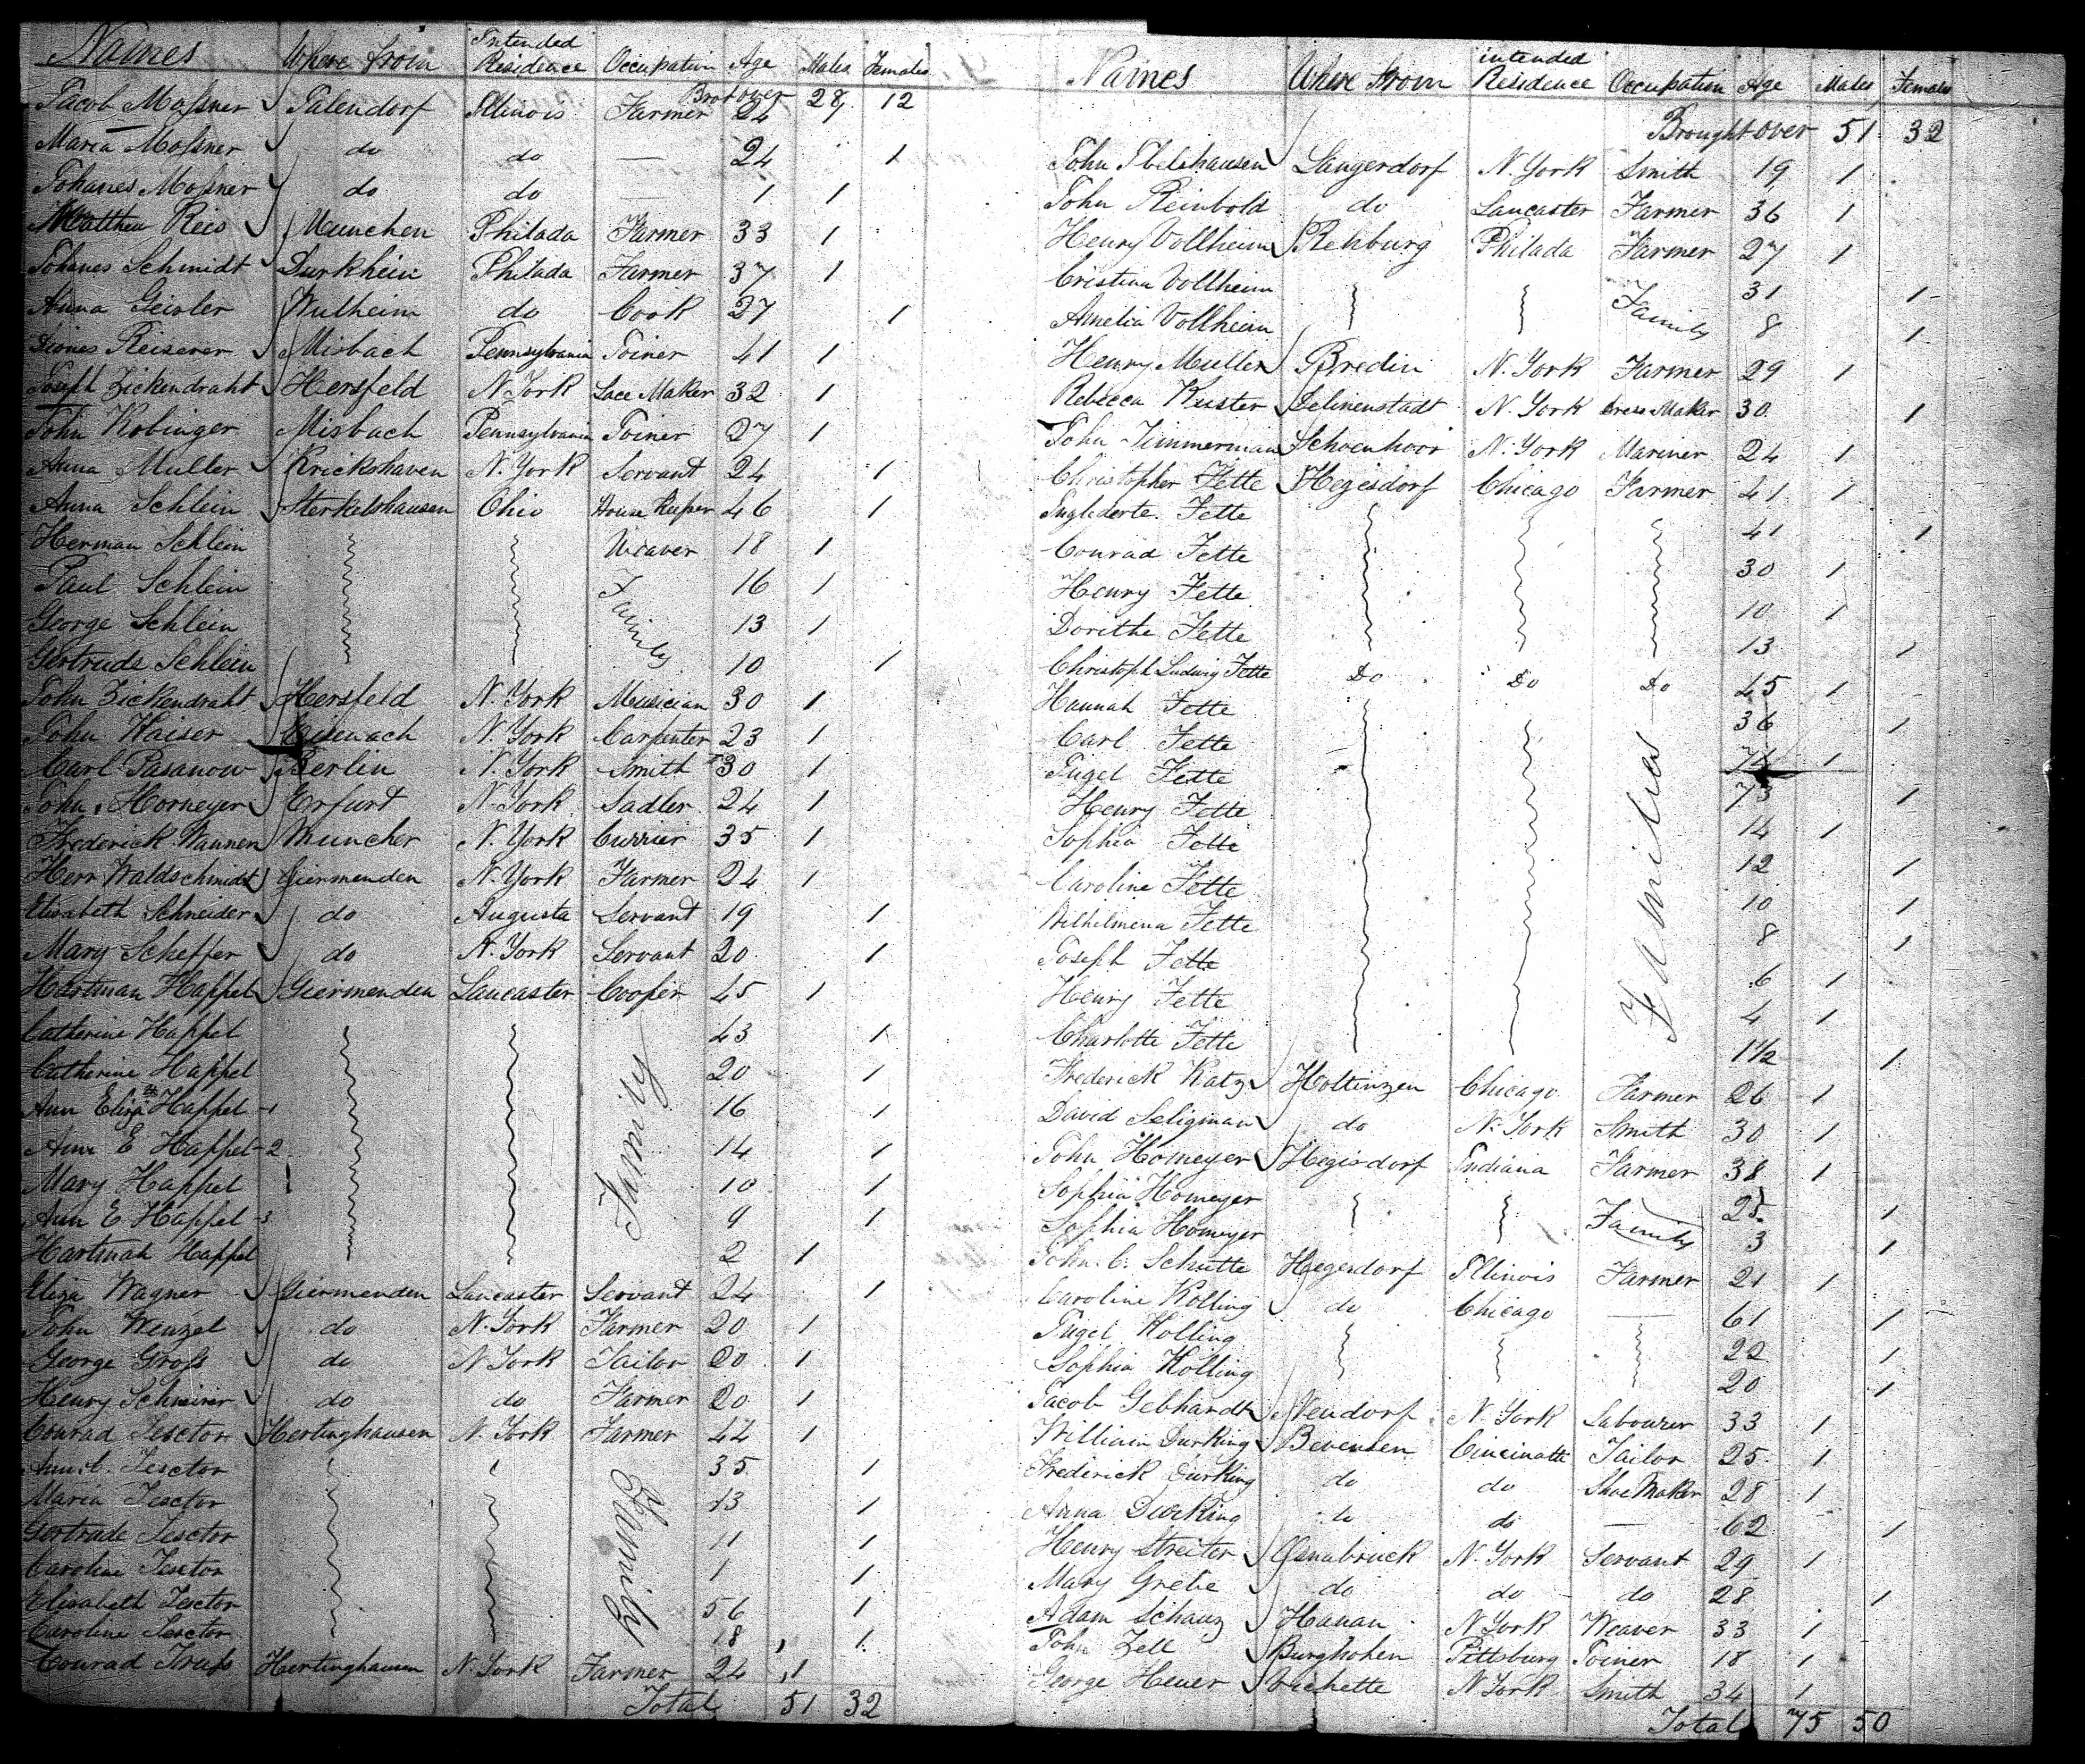 Names Where from Intended Residence Occupation Age Males Females
Brot over 28 12
Jacob Moſsner Talendorf Illinois Farmer 24
Maria Moſsner do do — 24 1
Johanes Moſsner do do — 1 1
Matthew Reis Munchen Philada Farmer 33 1
Johanes Schmidt Durkhein Philada Farmer 37 1
Anna Geisler Wulheim do Cook 27 1
Reiserer Misbach Pennsylvania Joiner 41 1
Joseph Zickendraht Hersfeld N. York Lace Maker 32 1
John Kobinger Misbach Pennsylvania Joiner 27 1
Anna Muller Krickshaven N. York Servant 24 1
Anna Schlein Sterkelshausen Ohio House Keeper 46 1
Herman Schlein Weaver 18 1
Paul Schlein Family 16 1
George Schlein 13 1
Gertrude Schlein 10 1
John Zickendraht Hersfeld N. York Musician 30 1
John Kaiser Eisenach N. York Carpenter 23 1
Carl Pasanow Berlin N. York Smith 30 1
John Horneyer Erfurt N. York Sadler 24 1
Frederick Wannen Muncher N. York Currier 35 1
Herr Waldschmidt Giermenden N. York Farmer 24 1
Elisabeth Schneider do Augusta Servant 19 1
Mary Scheffer do N. York Servant 20 1
Hartman Happel Giermenden Lancaster Cooper 45 1
Catherine Happel Family 43 1
Catherine Happel 20 1
Ann Elizath Happel -1 16 1
Ann E Happel -2 14 1
Mary Happel 10 1
Ann E Happel -3 9 1
Hartmah Happel 2 1
Eliza Wagner Giermenden Lancaster Servant 24 1
John Wenzel do N. York Farmer 20 1
George Groſs do N York Tailor 20 1
Henry Schnirer do do Farmer 20 1
Conrad Tesctor Hertinghausen N. York Farmer 42 1
Ann C. Tesctor Family 35 1
Maria Tesctor 13 1
Gertrude Tesctor 11 1
Caroline Tesctor 1 1
Elisabeth Tesctor 56 1
Caroline Tesctor 18 1
Conrad Truſs Hertinghausen N. York Farmer 24 1
Total 51 32
Names Where From intended Residence Occupation Age Males Females
Brought over 51 32
John Langerdorf N. York Smith 19 1
John Reinbold do Lancaster Farmer 36 1
Henry Vollheim Rehburg Philada Farmer 27 1
Cristina Vollheim Family 31 1
Amelia Vollheim 8 1
Henry Muller Bredin N. York Farmer 29 1
Rebecca Kuster Delmenstadt N. York Dress Maker 30 1
John Timmerman Schoenhoor N. York Mariner 24 1
Christopher Fette Hegesdorf Chicago Farmer 41 1
Fette 41 1
Conrad Fette 30 1
Henry Fette 10 1
Dorithe Fette 13 1
Christoph Ludwig Fette Do Do Do 45 1
Hannah Fette Families 36 1
Carl Fette 74 1
Engel Fette 73 1
Henry Fette 14 1
Sophia Fette 12 1
Caroline Fette 10 1
Wilhelmena Fette 8 1
Joseph Fette 6 1
Henry Fette 4 1
Charlotte Fette 1½ 1
Frederick Katz Holtinzen Chicago Farmer 26 1
David Seligman do N. York Smith 30 1
John Homeyer Hegisdorf Indiana Farmer 38 1
Sophia Homeyer Family 25 1
Sophia Homeyer 3 1
John C. Schutte Hegesdorf Illinois Farmer 21 1
Caroline Kolling do Chicago — 61 1
Engel Kolling 22 1
Sophia Kolling 20 1
Jacob Gebhardt Neudorf N. York Labourer 33 1
William Durking Bevensen Cincinatti Tailor 25 1
Frederick Durking do do Shoe Maker 28 1
Anna Durking do do — 62 1
Henry Streiter Osnabruck N. York Servant 29 1
Mary Grebe do do do 28 1
Adam Schanz Hanau N York Weaver 33 1
John Zell Burghohen Pittsburg Joiner 18 1
George Heuer Vachette N York Smith 34 1
Total 75 50